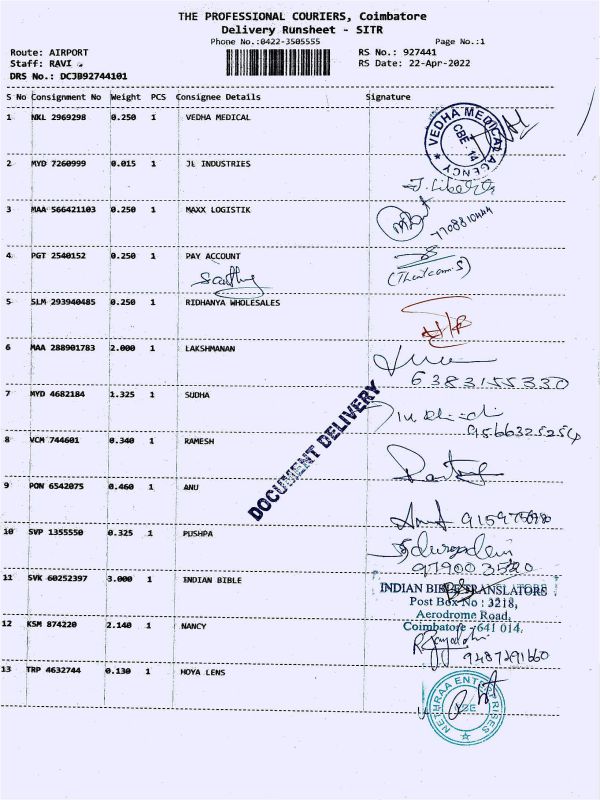 THE PROFESSIONAL COURIERS, Coimbatore
Delivery Runsheet - SITR
Phone No.:0422-3505555 Page No.:1
Route: AIRPORT RS No.: 927441
Staff: RAVI . RS Date: 22-Apr-2022
DRS No.: DCJB92744101
S No Consignment No Weight PCS Consignee Details Signature
1 NKL 2969298 0.250 1 VEDHA MEDICAL
VEDHA MEDICAL AGENCY CBE - 14
2 MYD 7260999 0.015 1 JL INDUSTRIES
3 MAA 566421103 0.250 1 MAXX LOGISTIK
4 PGT 2540152 0.250 1 PAY ACCOUNT
5 SLM 293940485 0.250 1 RIDHANYA WHOLESALES
6 MAA 288901783 2.000 1 LAKSHMANAN
6383155330
7 MYD 4682184 1.325 1 SUDHA
9566325254
DOCUMENT DELIVERY
8 VCM 744601 0.340 1 RAMESH
9 PON 6542075 0.460 1 ANU
10 SVP 1355550 0.325 1 PUSHPA
979003520
11 SVK 60252397 3.000 1 INDIAN BIBLE
INDIAN BIBLE TRANSLATORS
Post Box No : 3218,
Aerodrome Road,
Coimbatore - 641 014.
12 KSM 874220 2.140 1 NANCY
9487291660
13 TRP 4632744 0.130 1 HOYA LENS
NETHRAA ENTERPRISES